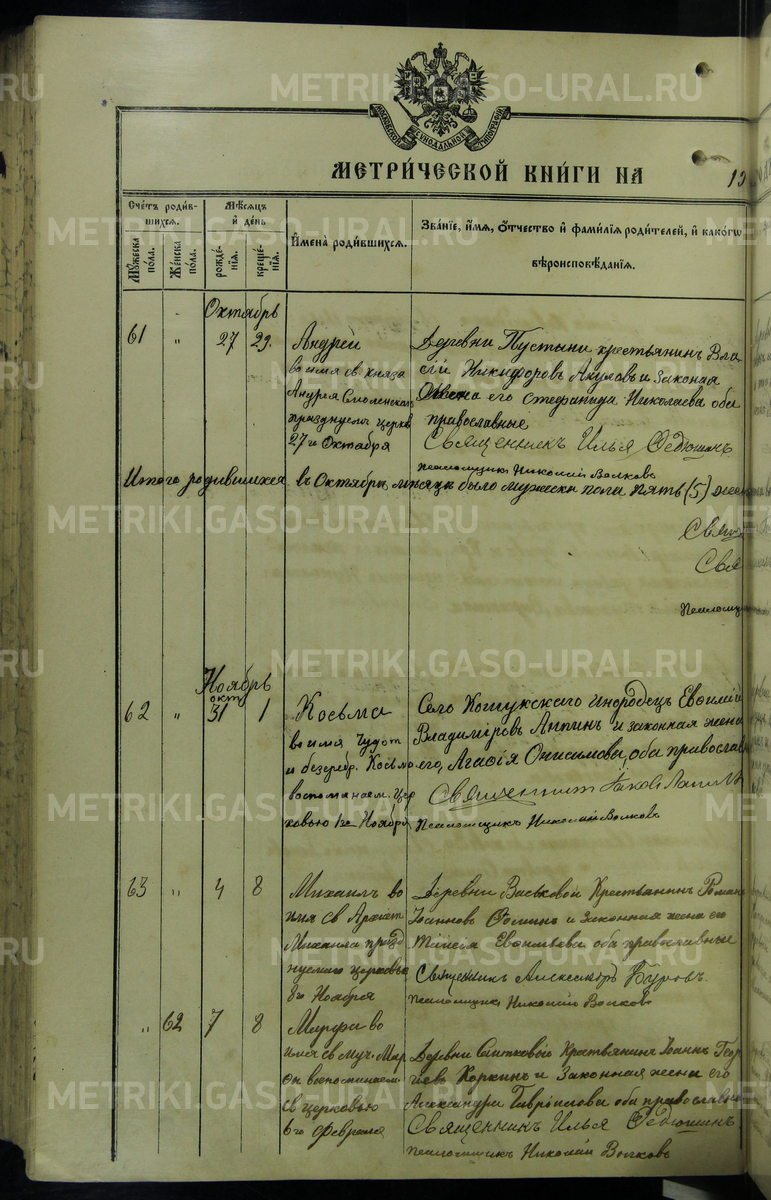 МОСКОВСКОЙ СУНОДАЛЬНОЙ ТИПОГРАФІИ
МЕТРИ́ЧЕСКОЙ КНИ́ГИ НА 19
Сче́тъ роди́вшихся.
Мꙋ́жеска по́ла.
Же́нска по́ла.
Мѣ́сяцъ и де́нь
рожде́нія.
креще́нія.
И҆мена̀ роди́вшихся.
Зва́ніе, и҆́мя, ѻ҆́тчество и҆ фами́лія роди́телей, и҆ како́гѡ
вѣроисповѣ́данія.
Октябрь
61 " 27 29.
Андрей
во имя св. князя
Андрея Смоленскаго
празднуем церков
27го Октября
Деревни Пустыни крестьянинъ Вла
сій Никифоровъ Акуловъ и законная
жена его Стефанида Николаева оба
православные
Священникъ Илья Федюшинъ
Псаломщикъ Николай Волковъ
Итого родившихся въ Октябрѣ мѣсяцѣ было мужска пола пять (5) жен
Свящ
Свя
Псаломщи
Ноябрь
62 " окт 31 1
Косьма
во имя Чудот
и безсребр. Косьмы
воспоминаем. цер
ковью 1го Ноября
Село Кошукскаго инородецъ Евѳимій
Владиміровъ Анпинъ и законная жена
его, Агаѳія Онисимова, оба православ
Священникъ
Псаломщикъ Николай Волковъ
63 " 4 8
Михаилъ во
имя св Архист
Михаила празд
нуемаго церковью
8го Ноября
Деревни Васьковой Крестьянинъ Роман
Іоанновъ Ѳоминъ и Законная жена его
Таисія Евѳимьева оба православные
Священникъ Александръ Буровъ
Псаломщикъ Николай Волковъ
" 62 7 8
Марфа во
имя св муч. Мар
ѳы воспоминаем
св церковью
6го Февраля
Деревни Ситковой Крестьянинъ Іоаннъ Геор
гіевъ Коркинъ и Законная жена его
Александра Гавріилова оба православные
Священникъ Илья Федюшинъ
Псаломщикъ Николай Волковъ
METRIKI.GASO-URAL.RU